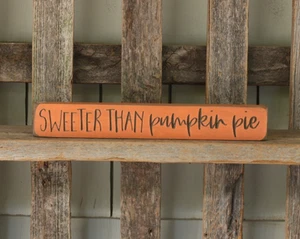 SWEETER THAN pumpkin pie